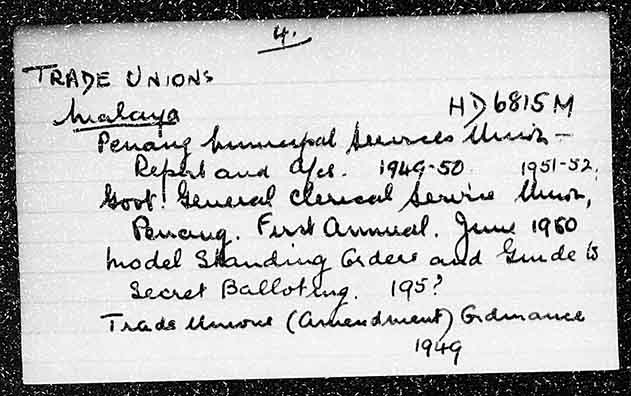 4.
TRADE UNIONS
Malaya HD6815M
Penang Municipal Services Union -
Report and a/cs. 1949-50 1951-52.
Govt. General Clerical Service Union,
Penang. First Annual. June 1950
Model Standing Orders and Guide to
Secret Balloting. 195?
Trade Unions (Amendment) Ordinance
1949